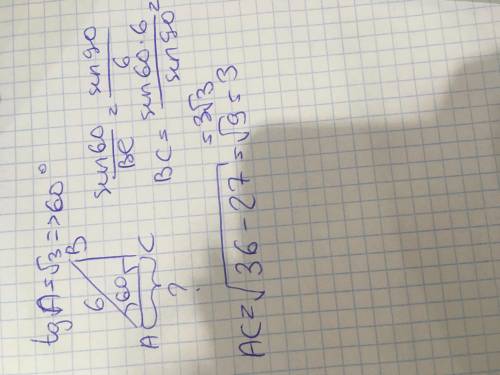 tgA=√3=>60°
B
6
60
A
C
?
sin60/BC = sin90/6
BC = sin60·6/sin90 =
=3√3
AC=√36-27=√9=3